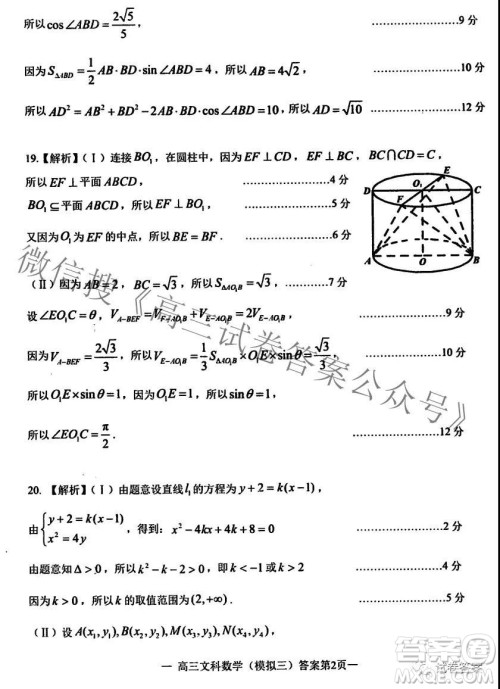 所以cos∠ABD=2√5/5, ……………9分
因为S△ABD=1/2 AB·BD·sin∠ABD=4,所以AB=4√2, ……………10分
所以AD²=AB²+BD²-2AB·BD·cos∠ABD=10,所以AD=√10 ……………12分
19.【解析】(Ⅰ)连接BO₁,在圆柱中,因为EF⊥CD,EF⊥BC,BC∩CD=C,
所以EF⊥平面ABCD, ……………4分
BO₁⊆平面ABCD,所以EF⊥BO₁. ……………5分
又因为O₁为EF的中点,所以BE=BF. ……………6分
D O₁ E C F A O B
(Ⅱ)因为AB=2,BC=√3,所以S△AO₁B=√3, ……………7分
设∠EO₁C=θ,V_A-BEF=V_F-AO₁B+V_E-AO₁B=2V_E-AO₁B, ……………9分
因为V_A-BEF=2√3/3,所以V_E-AO₁B=1/3 S△AO₁B×O₁E×sinθ=√3/3, ……………10分
所以O₁E×sinθ=1,因为O₁E=1,所以sinθ=1,
所以∠EO₁C=π/2. ……………12分
20.【解析】(Ⅰ)由题意设直线l₁的方程为y+2=k(x-1),
由{y+2=k(x-1) x²=4y,得到:x²-4kx+4k+8=0 ……………2分
由题意知Δ>0,所以k²-k-2>0,即k<-1或k>2 ……………4分
因为k>0,所以k的取值范围为(2,+∞). ……………5分
(Ⅱ)设A(x₁,y₁),B(x₂,y₂),M(x₃,y₃),N(x₄,y₄)
— 高三文科数学(模拟三)答案第2页—
微信搜《高三试卷答案公众号》
试卷答案